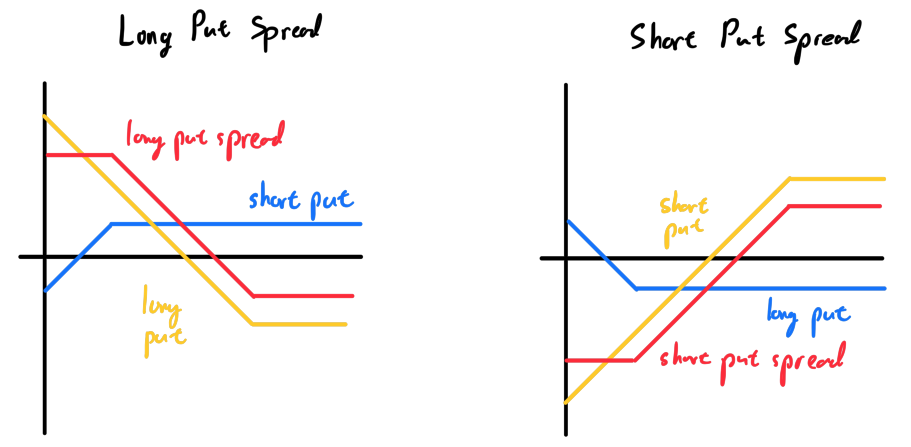 Long Put Spread
long put spread
short put
long
put
Short Put Spread
short
put
long put
short put spread